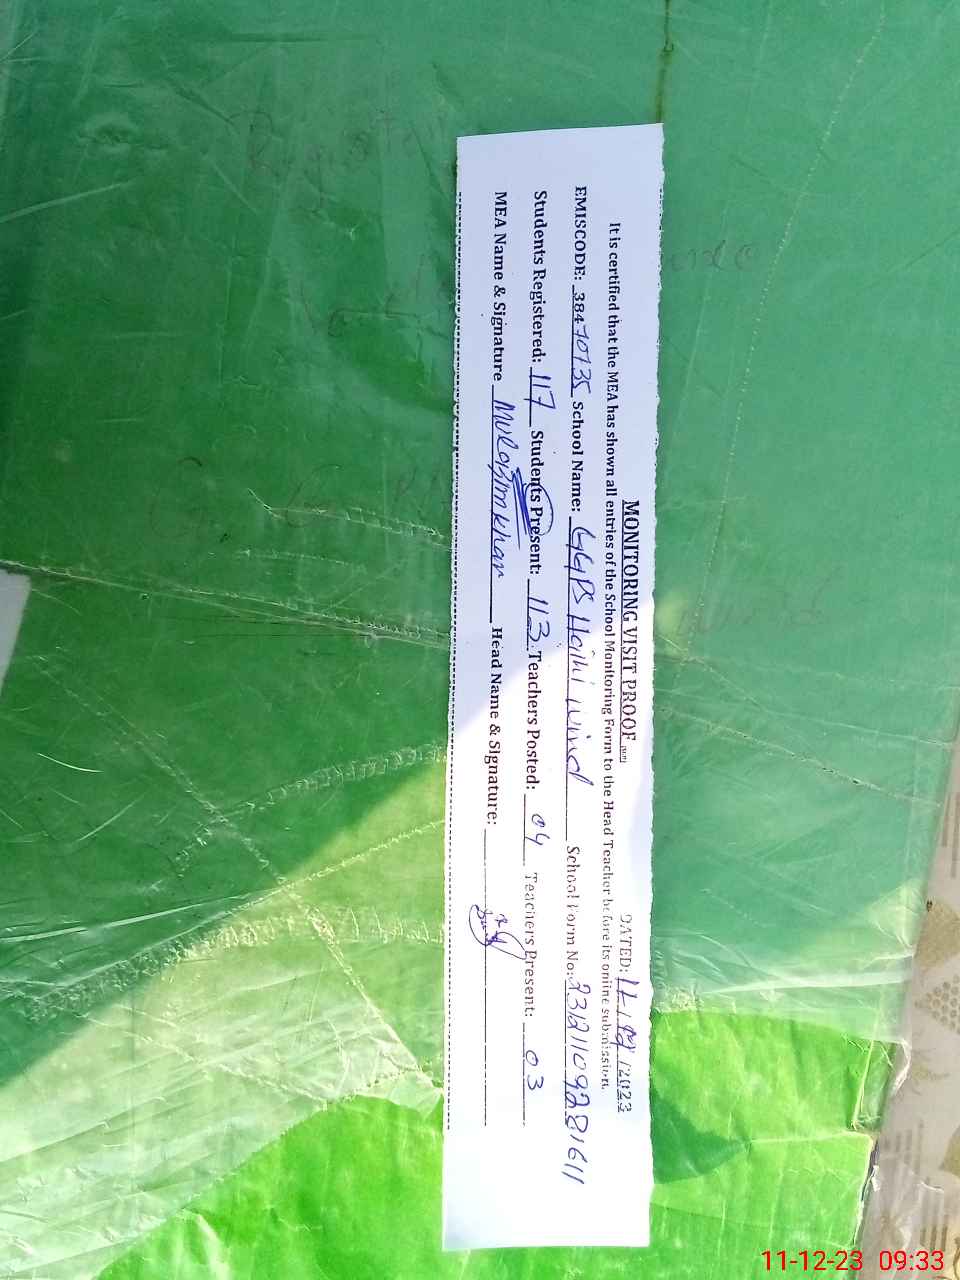 MONITORING VISIT PROOF
DATED: 11/12/2023
It is certified that the MEA has shown all entries of the School Monitoring Form to the Head Teacher before its online submission.
EMISCODE: 38470135 School Name: GGPS Hajhi Wind School Form No: 23121109281611
Students Registered: 117 Students Present: 113 Teachers Posted: 04 Teachers Present: 03
MEA Name & Signature Mulazim Khan Head Name & Signature:
11-12-23 09:33